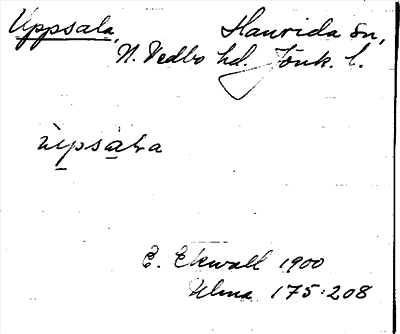 Uppsala, Haurida sn,
N. Vedbo hd. Jönk. l.
ùpsàla
E. Ekwall 1900
Ulma 175:208